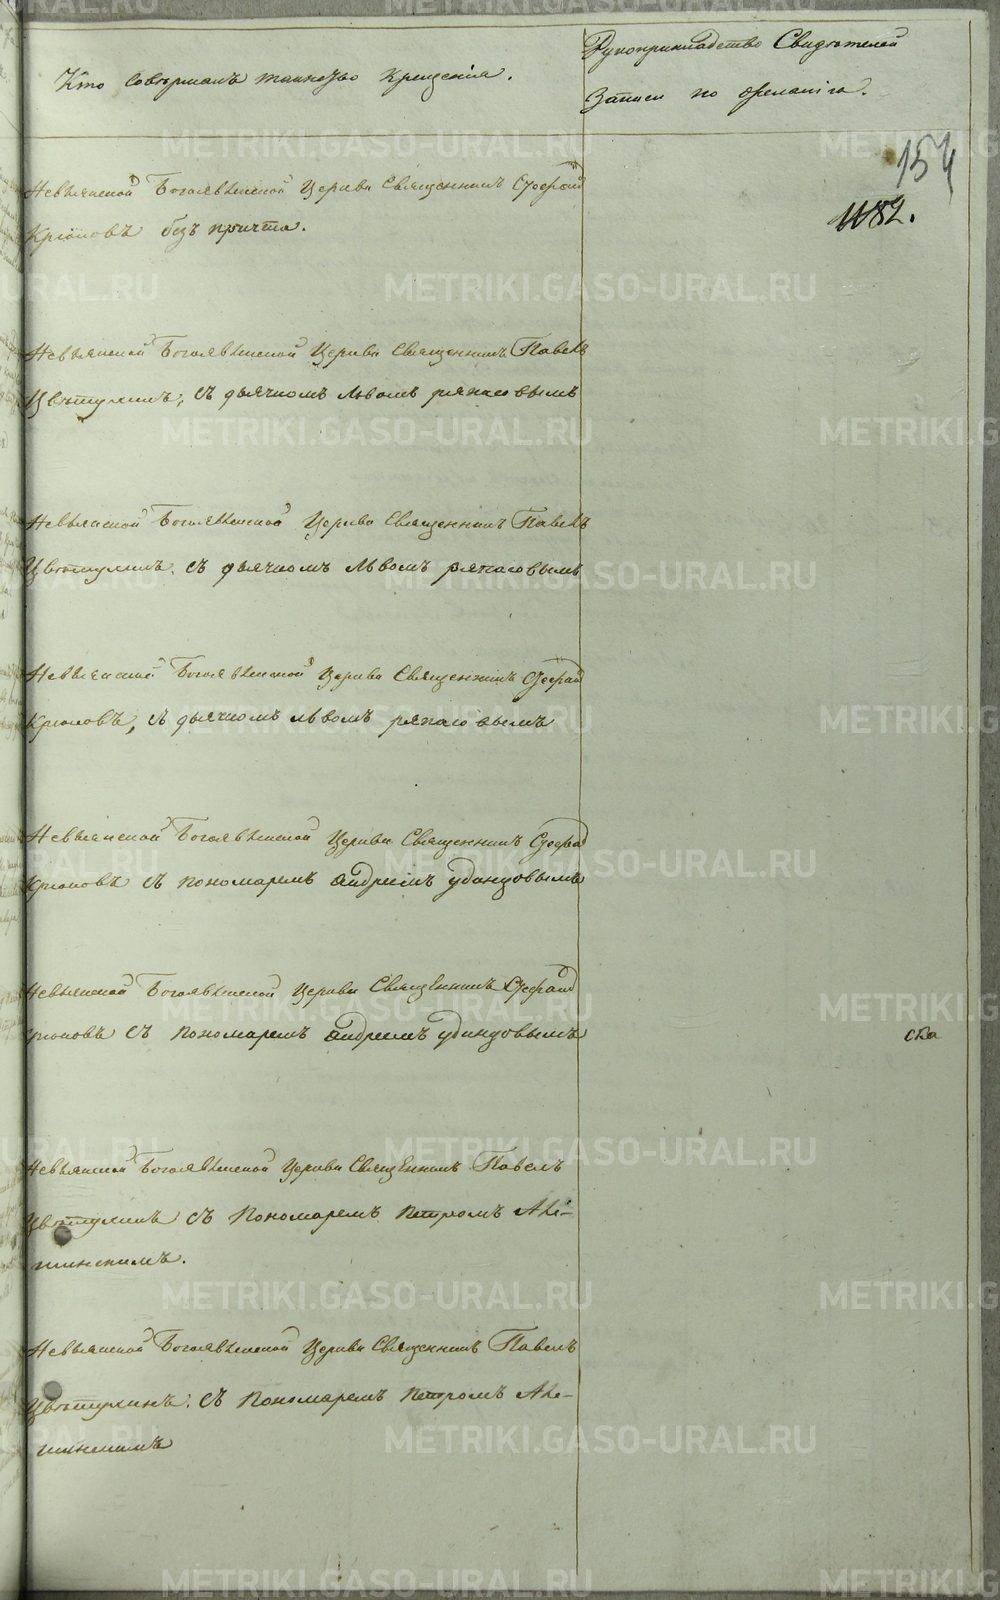 Кто совершалъ таинство крещенія.
Рукоприкладство Свидѣтелей
Записи по желанію.
154
1182.
Невьянской Богоявленской Церкви Священникъ Стефанъ
Крюковъ безъ причта.
Невьянской Богоявленской Церкви Священникъ Павелъ
Цвѣтухинъ, съ дьячкомъ Львомъ
Невьянской Богоявленской Церкви Священникъ Павелъ
Цвѣтухинъ. съ дьячкомъ Львомъ
Невьянской Богоявленской Церкви Священникъ Стефанъ
Крюковъ, съ дьячкомъ Львомъ
Невьянской Богоявленской Церкви Священникъ Стефанъ
Крюковъ съ пономаремъ Андреемъ Удинцовымъ
Невьянской Богоявленской Церкви Священникъ Стефанъ
Крюковъ съ пономаремъ Андреемъ Удинцовымъ
ска
Невьянской Богоявленской Церкви Священникъ Павелъ
Цвѣтухинъ съ пономаремъ Петромъ
Невьянской Богоявленской Церкви Священникъ Павелъ
Цвѣтухинъ. съ пономаремъ Петромъ
METRIKI.GASO-URAL.RU